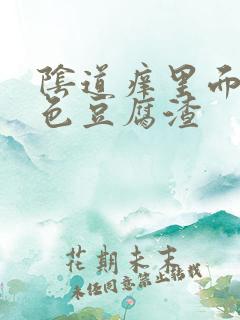 陰道痒里而
色豆腐渣
花期未末
未经同意禁止转载